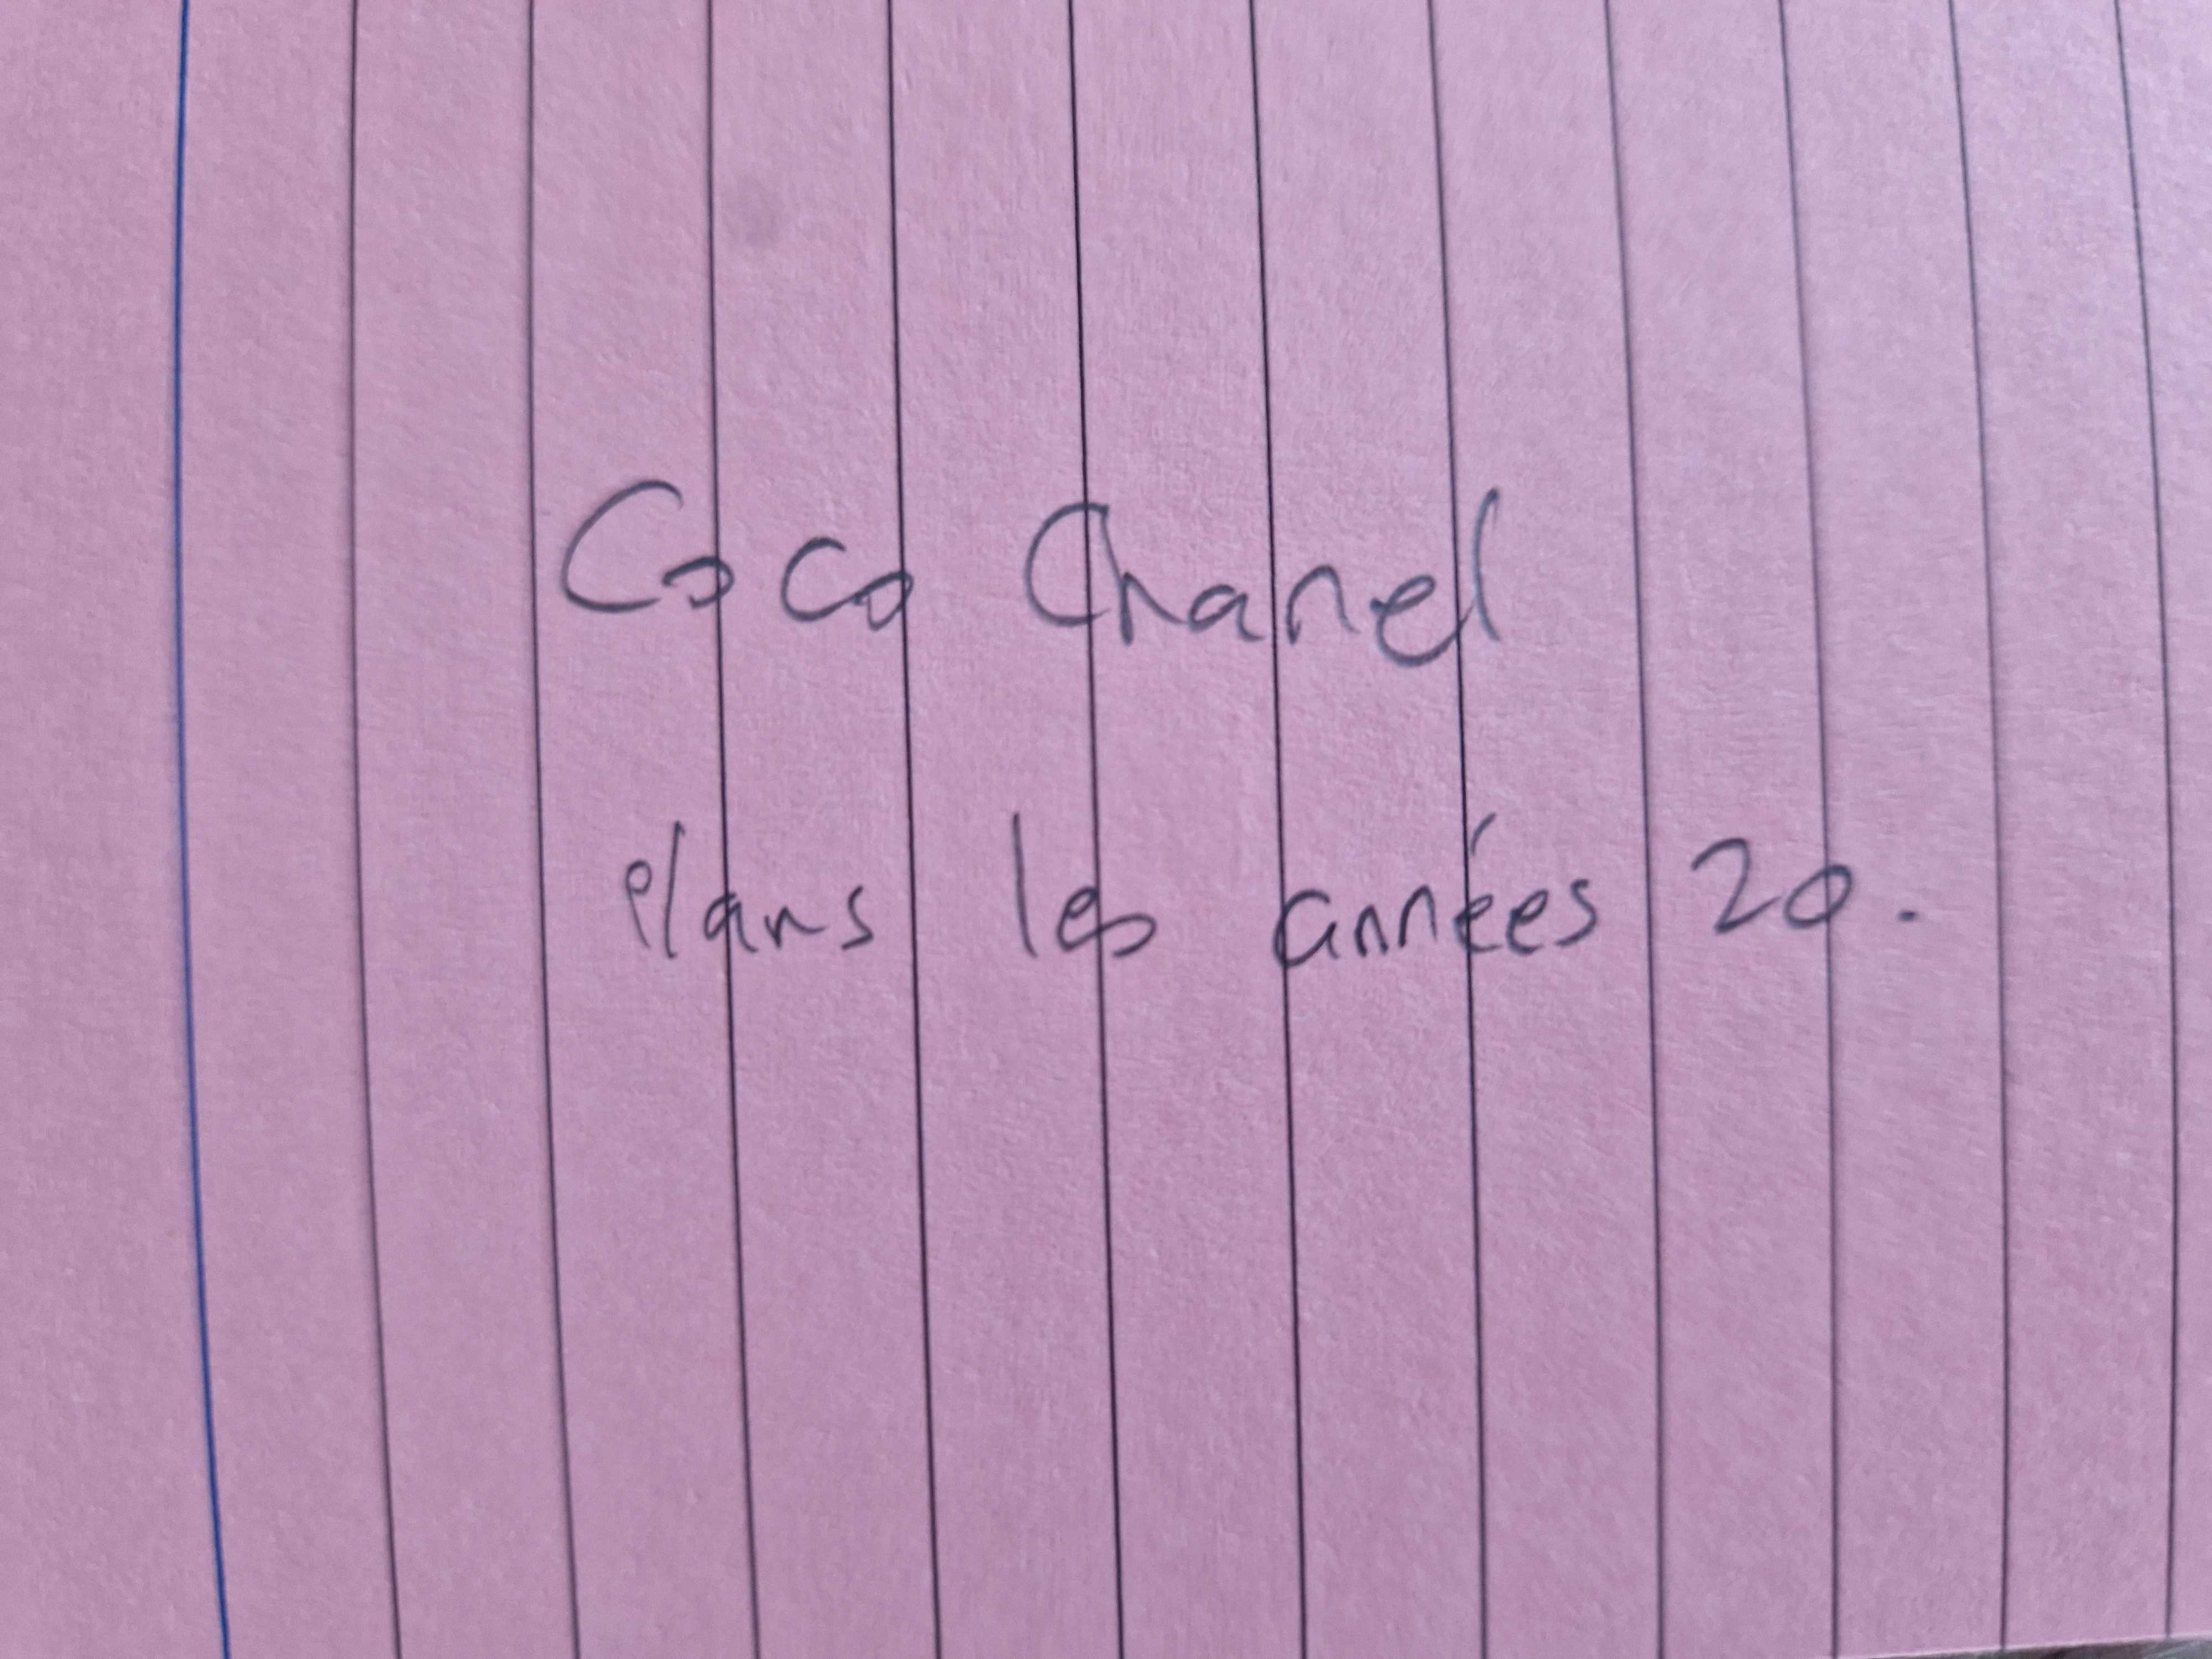 Coco Chanel
dans les années 20.